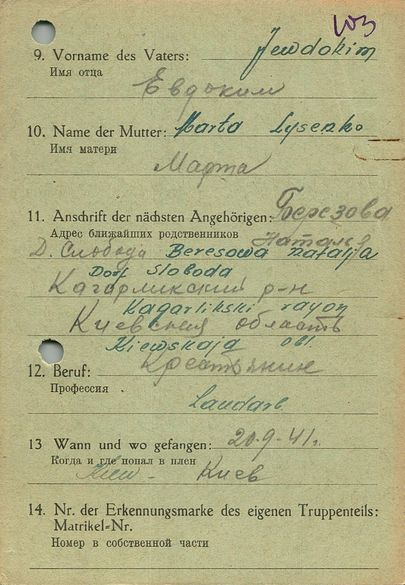 103
9. Vorname des Vaters: Jewdokim
Имя отца
Евдоким
10. Name der Mutter: Marta Lysenko
Имя матери
Марта
11. Anschrift der nächsten Angehörigen: Березова
Адрес ближайших родственников Наталья
Д. Слобода Beresowa Natalja
Dorf Sloboda
Кагарликский р-н
Kagarlikski rayon
Киевская область
Kiewskaja obl.
12. Beruf: Крестьянин
Профессия
Landarb.
13 Wann und wo gefangen: 20.9-41г.
Когда и где попал в плен
Kiew - Киев
14. Nr. der Erkennungsmarke des eigenen Truppenteils:
Matrikel-Nr.
Номер в собственной части